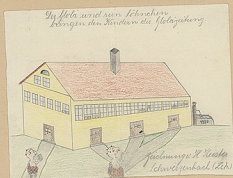 Der Globi und sein Söhnchen
bringen den Kindern die Globizeitung
Zeichnung: H. Forster
Schwerzenbach (Zch)